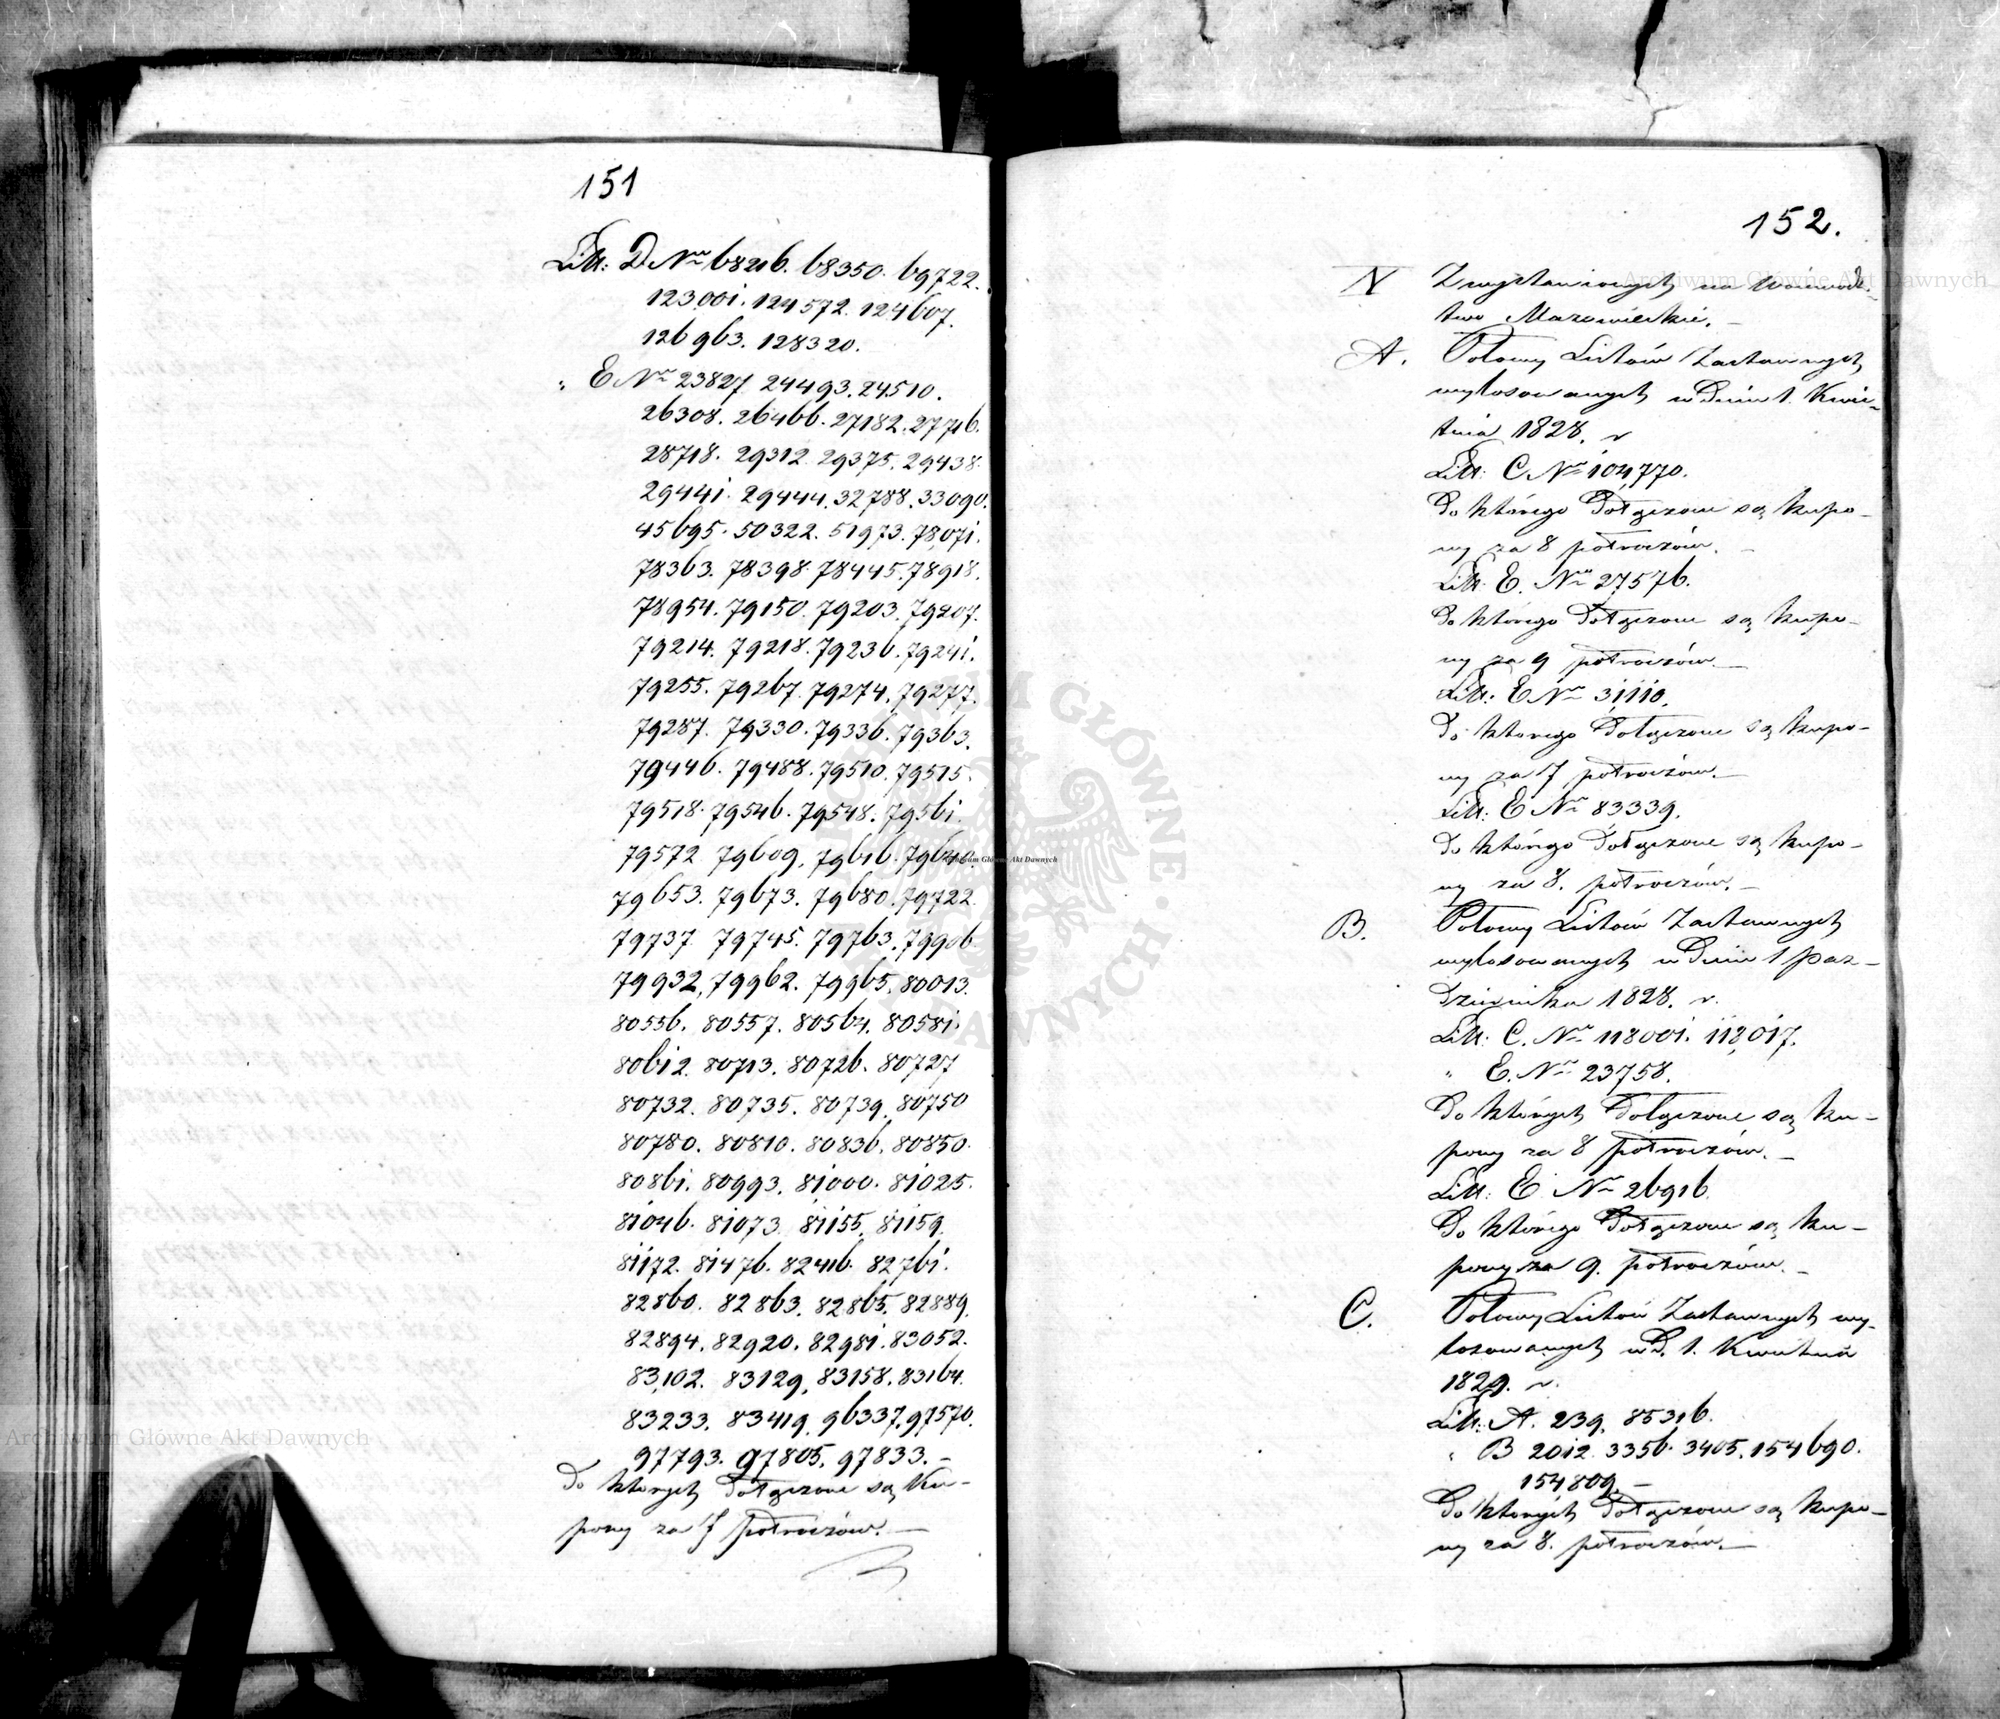 151
Litt: D Nrn 68216. 68350. 69722.
123,001. 124572. 124607.
126963. 128320.
" E Nrn 23827. 24493. 24510.
26308. 26466. 27182. 27716.
28718. 29312. 29375. 29438.
29441. 29444. 32788. 33090.
45695. 50322. 51973. 78,071.
78363. 78398. 78445. 78918.
78954. 79150. 79203. 79207.
79214. 79218. 79236. 79241.
79255. 79267. 79274. 79277.
79287. 79330. 79336. 79363.
79446. 79488. 79510. 79515.
79518. 79546. 79548. 79561.
79572. 79609. 79616. 79640.
79653. 79673. 79680. 79722.
79737. 79745. 79763. 79906
79932. 79962. 79965. 80013.
80556. 80557. 80564. 80581.
80612. 80713. 80726. 80727
80732. 80735. 80739. 80750
80780. 80810. 80836. 80850.
80861. 80993. 81000. 81025.
81046. 81073. 81155. 81159.
81172. 81476. 82416. 82761.
82860. 82863. 82865. 82889.
82894. 82920. 82981. 83052.
83,102. 83129. 83158. 83164.
83233. 83419. 96337. 97570.
97793. 97805. 97833. –
Do których dołączone są Ku–
pony za 7 półroczów. –
152.
N Z wystawionych na Wojewódz–
two Mazowieckie. –
A. Połowy Listów Zastawnych
wylosowanych w Dniu 1. Kwie–
tnia 1828. r
Litt: C Nr 104,770.
Do którego Dołączone są kupo–
ny za 8 półroczów. –
Litt: E. Nrn 27576.
Do którego Dołączone są kupo–
ny za 9 półroczów. –
Litt: E Nrn 31110.
Do którego Dołączone są kupo–
ny za 7 półroczów. –
Litt: E Nrn 83339.
Do którego Dołączone są kupo–
ny za 8. półroczów. –
B. Połowy Listów Zastawnych
wylosowanych w Dniu 1 Paź–
dziernika 1828. r.
Litt: C. Nrn 118001. 118,017.
" E. Nrn 23758.
Do których Dołączone są Ku–
pony za 8 półroczów. –
Litt: E Nrn 26916.
Do którego Dołączone są Ku–
pony za 9. półroczów. –
C. Połowy Listów Zastawnych wy–
losowanych w D. 1. Kwietnia
1829. r.
Litt: A. 239. 85316.
" B 2012. 3356. 3405. 154690.
154809. –
Do których Dołączone są kupo–
ny za 8. półroczów. –
Archiwum Główne Akt Dawnych
Archiwum Główne Akt Dawnych
Archiwum Główne Akt Dawnych